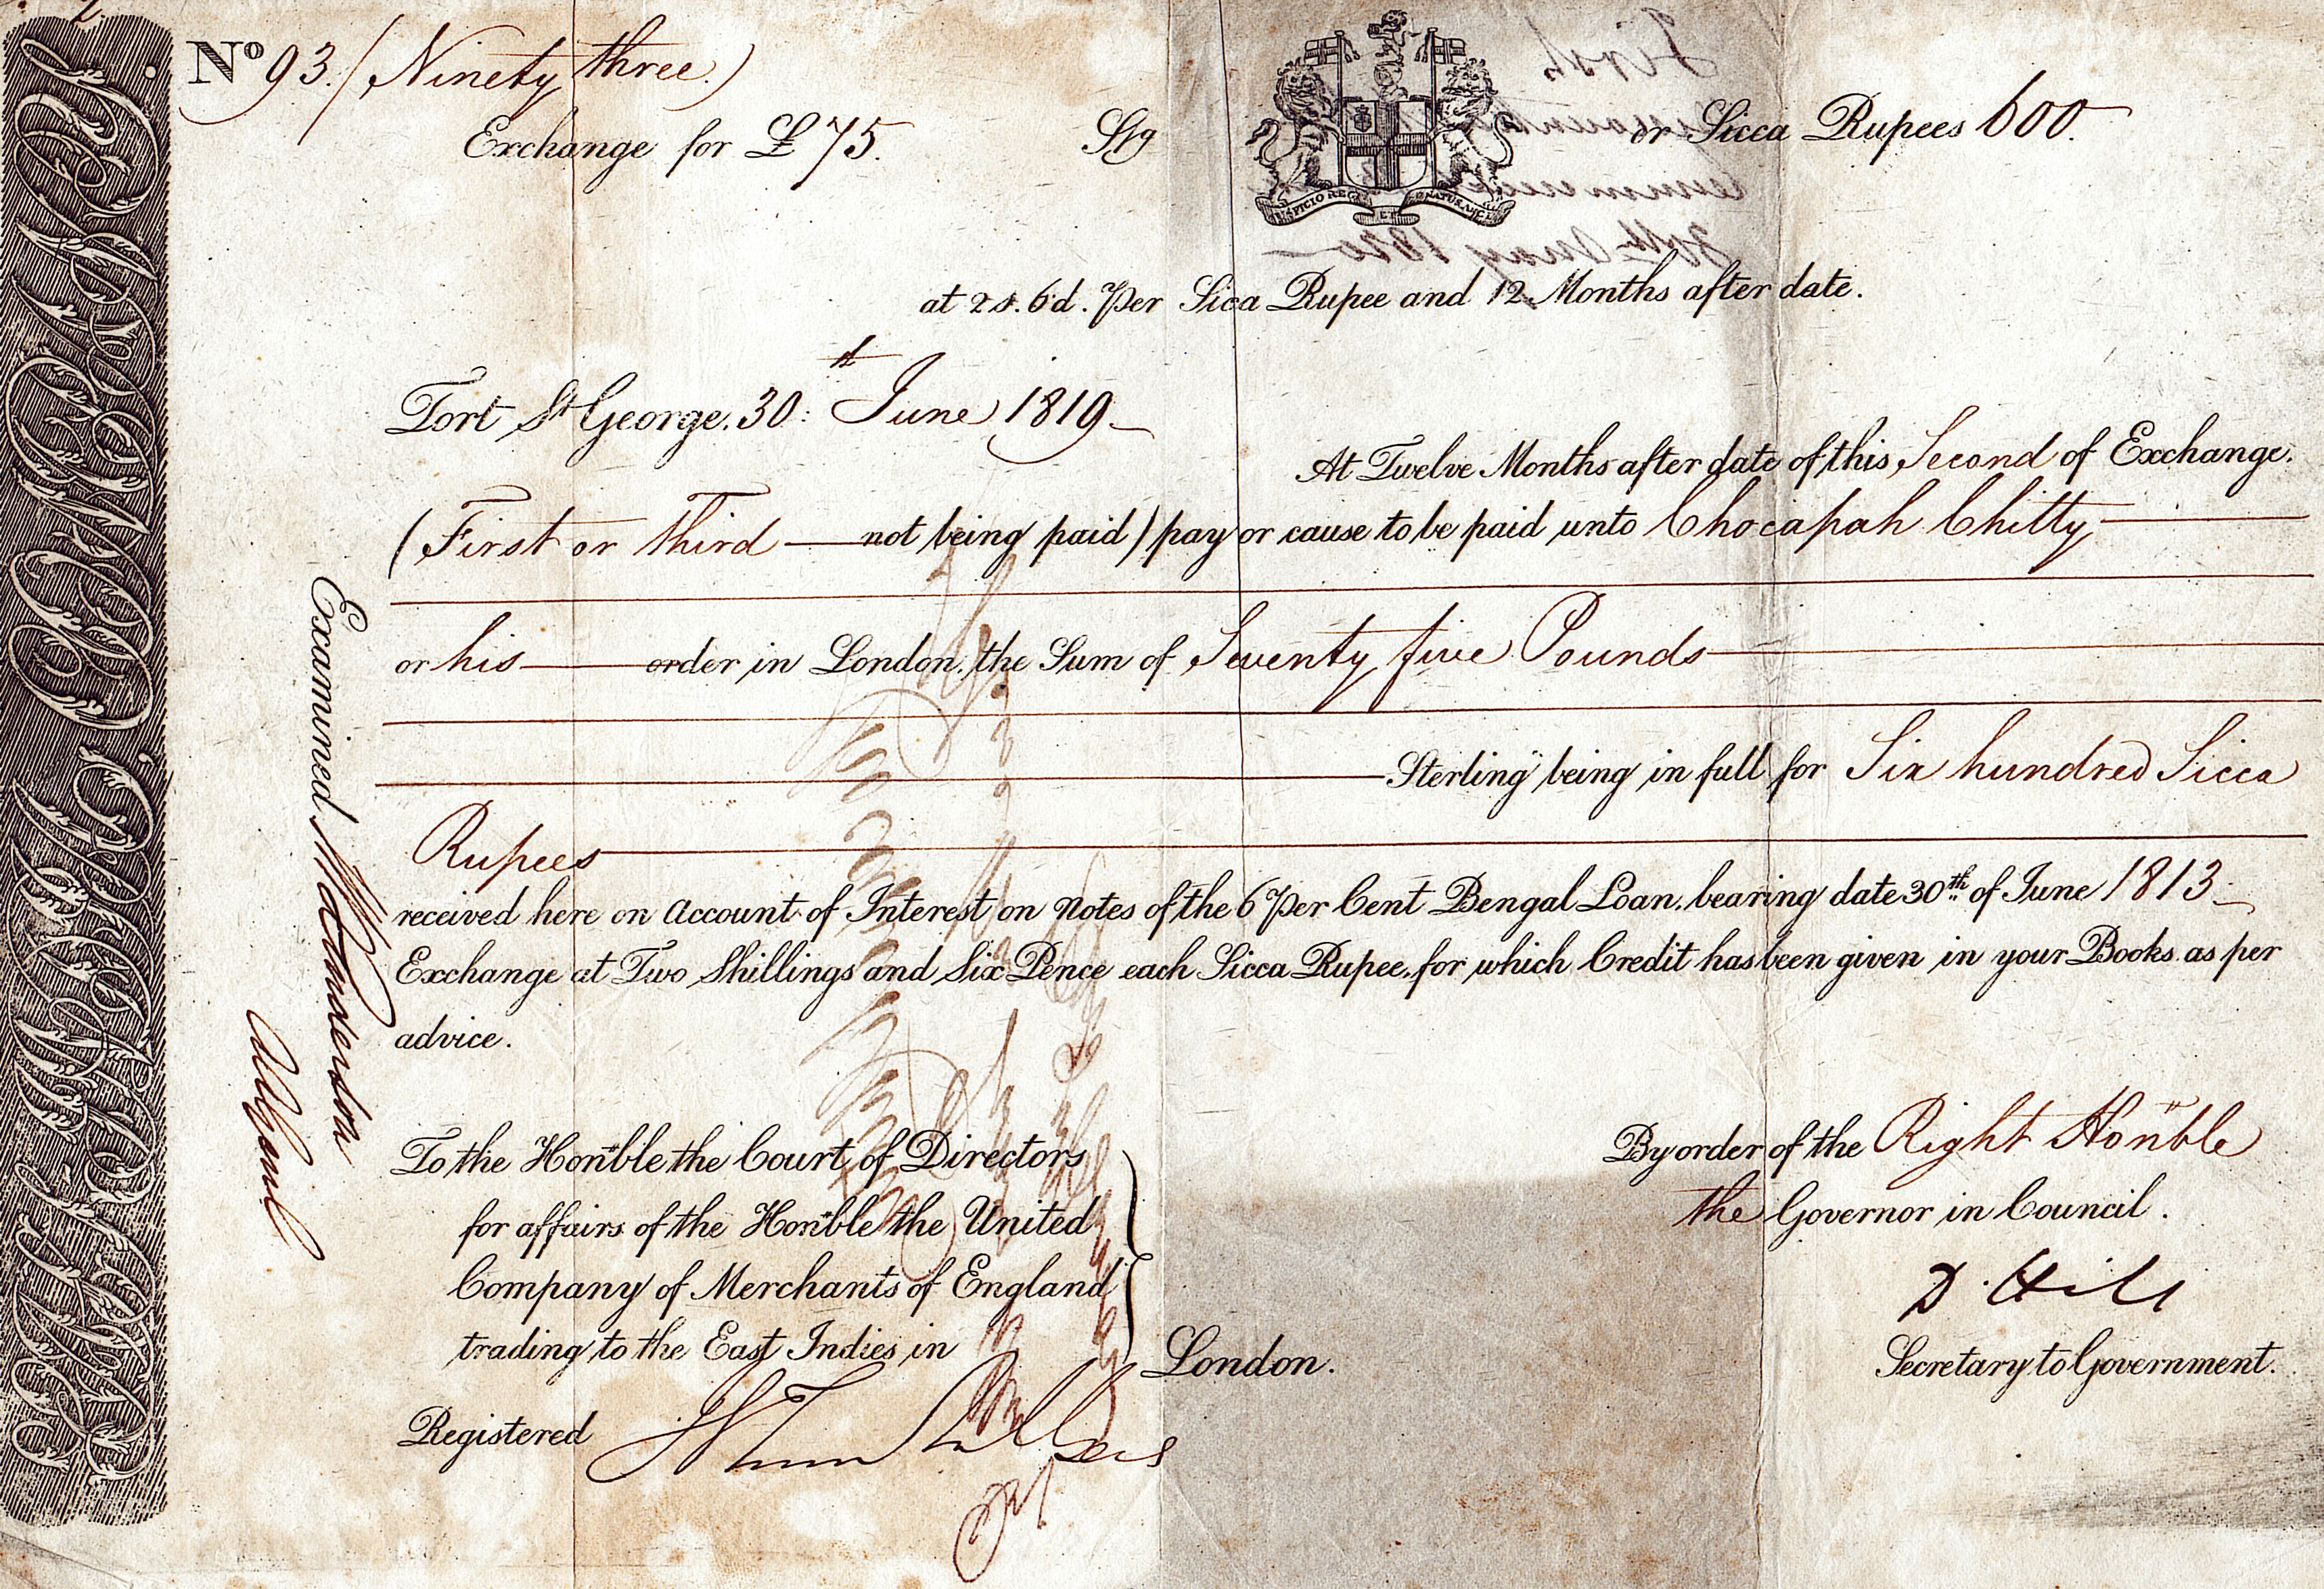 2
Nº 93. (Ninety three.)
Exchange for £75. Stg or Sicca Rupees 600.
at 2s. 6d. Per Sicca Rupee and 12 Months after date.
Fort St George. 30th June 1819
At Twelve Months after date of this Second of Exchange.
(First or Third not being paid) pay or cause to be paid unto Chocapah Chitty
or his order in London, the Sum of Seventy five Pounds
Sterling being in full for Six hundred Sicca
Rupees
received here on Account of Interest on Notes of the 6 Per Cent Bengal Loan, bearing date 30th of June 1813
Exchange at Two Shillings and Six Pence each Sicca Rupee, for which Credit has been given in your Books as per
advice.
To the Honble the Court of Directors
for affairs of the Honble the United
Company of Merchants of England
trading to the East Indies in London.
By order of the Right Honble
the Governor in Council.
D. Hill
Secretary to Government.
Registered
Examined
First
30th May 1820